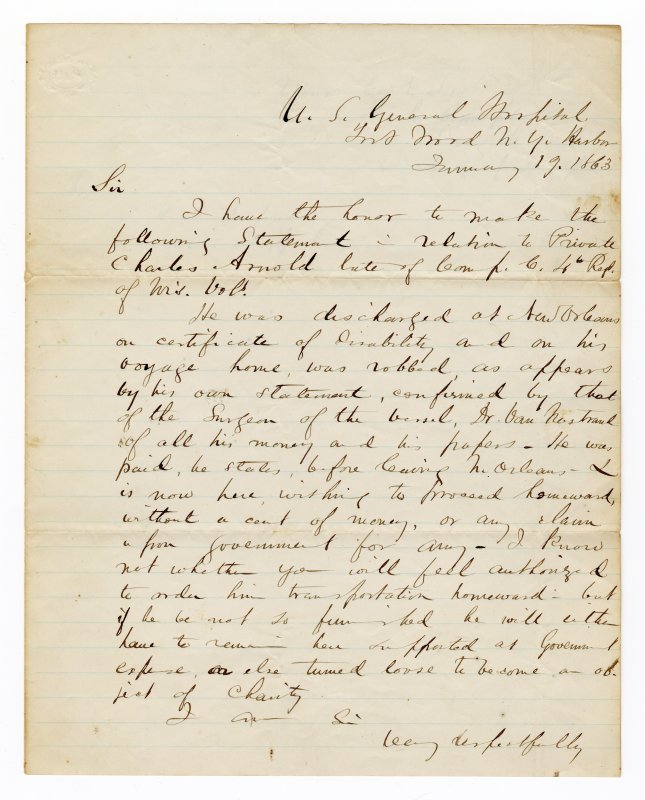 U. S. General Hospital
Fort Wood N. Y. Harbor
January 19. 1863
Sir
I have the honor to make the
following Statement in relation to Private
Charles Arnold late of Comp. C. 4th Reg.
of Wis. Vols.
He was discharged at New Orleans
on certificate of Disability and on his
voyage home, was robbed, as appears
by his own statement, confirmed by that
of the Surgeon of the vessel, Dr. Van Nostrand
of all his money and his papers - He was
paid, he states, before leaving N. Orleans - &
is now here, wishing to proceed homeward,
without a cent of money, or any claim
upon government for any - I know
not whether you will feel authorized
to order him transportation homeward - but
if he be not so furnished he will either
have to remain here supported at Government
expense, or else turned loose to become an ob-
ject of Charity
I am Sir
Very respectfully